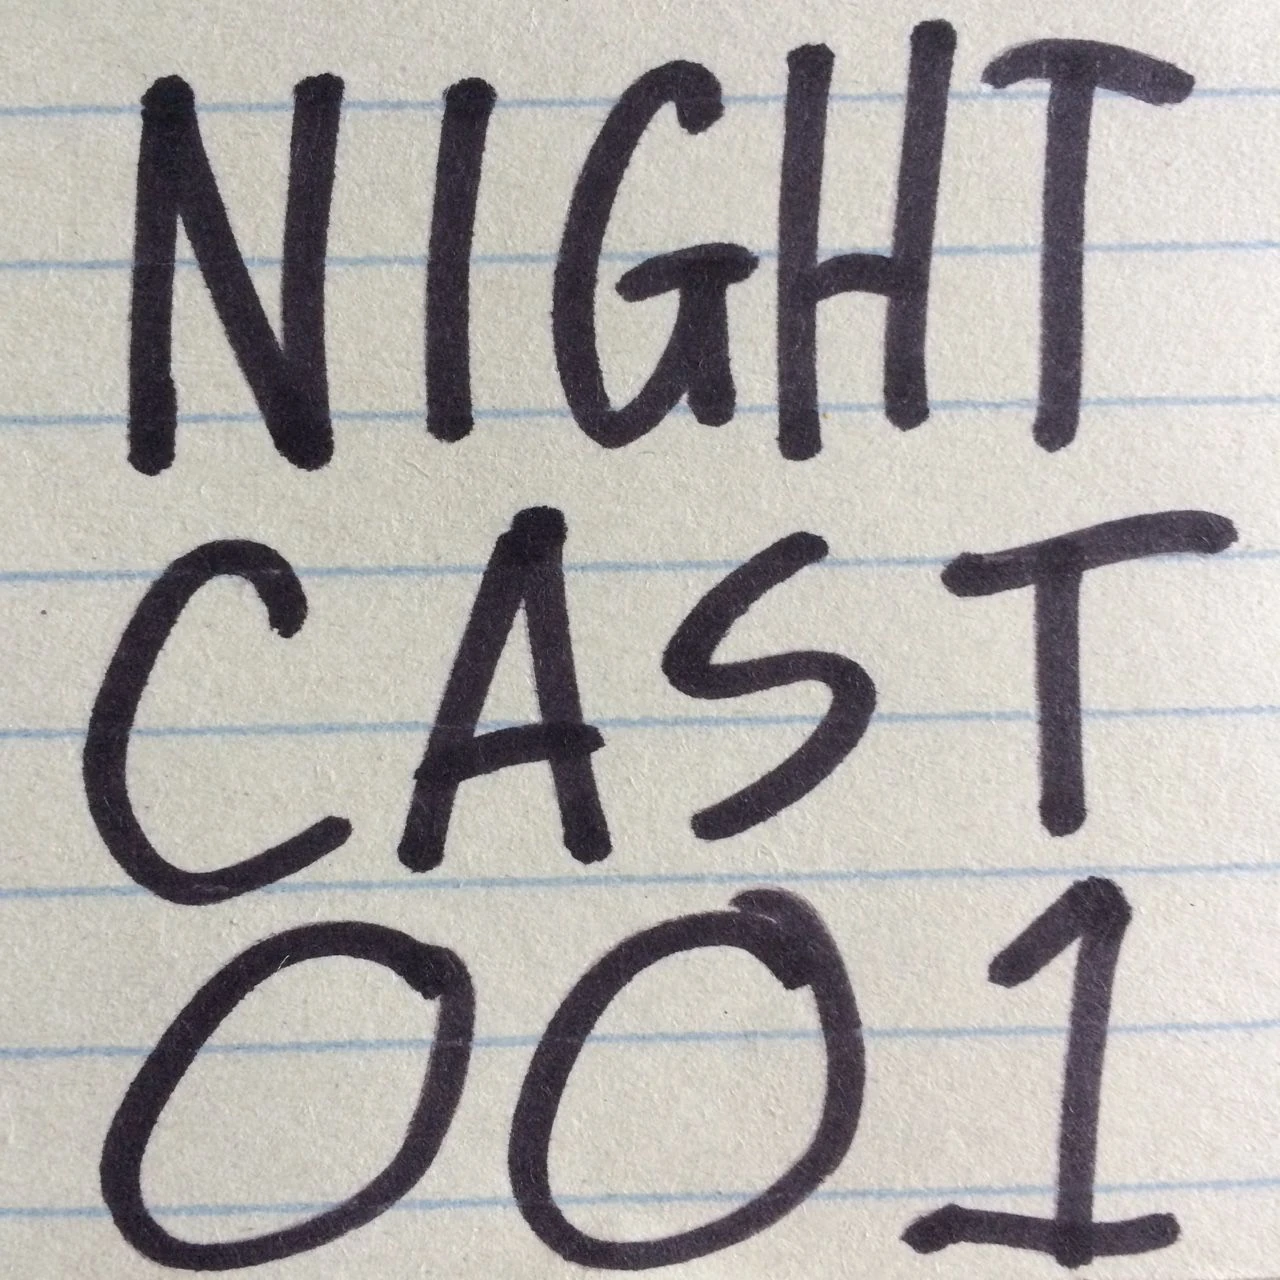 NIGHT
CAST
001